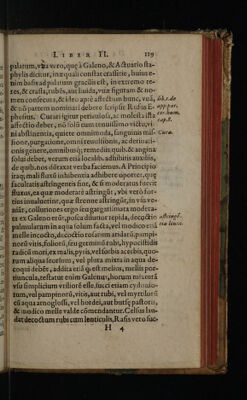 LIBER II. 119
palatum, vua vero, quæ à Galeno, & Actuario sta-
phylis dicitur, in æquali constat crassitie, huius e-
nim basis ad palatum gracilis est, in extremo te-
res, & crassa, rubēs, aut liuida, vuæ figuram & no-
men consecuta, & ideo aprè affectum hunc, vuā,
& nō partem nominari debere scripsit Rufus E-
phesius. Curari igitur periculosa, ac molesta ista
affectio debet, nō solū cum tenuissimo victu, vi-
ni abstinentia, quiete omnimoda, sanguinis mis-
sione, purgatione, omni reuulsionis, ac deriuati-
onis genere, partibusq; remedijs quib. & angina
solui debet, verum etiā localib. adhibitis auxilijs,
de quib. nos
itaq; mali fluxū inhibentia adhibere oportet, quę
facultati astringentis sint, & si moderatus fuerit
fluxus, ea quæ moderatè astringūt, vbi verò for-
tius inualuerint, quæ strenuè astringūt, in vsū ve-
niāt, collutiones ergo seu gargarismata modera-
ta ex Galeno erūt, posca dilutior tepida, decoctio
palmularum in aqua solum facta, vel modico vi-
ni melle indito, decoctio foliorum andarū, pampi-
norū vitis, foliorū, seu germinū rubi, hypocistidis
radicū moti, ex malis, pyris, vel sorbis acerbis, quo-
rum aliqua seorsum, vel plura mixta in aqua de-
coqui debēt, addita etiā q. est melius, mellis por-
tiuncula, testatus enim Galenus, horum mixturā
vsu simplicium vtiliorē esse. succi etiam cydonio-
rum, vel pampinorū, vitis, aut rubi, vel myrti florū
cū aqua arnoglossi, vel hordei, aut bursę pastoris,
& modico melle valde cōmendantur. Celsus lau-
dat decoctum rubi cum lenticulis, Rasis vero suc-
H 4
lib. 1. de
appar.
cap. 8.
Cura.